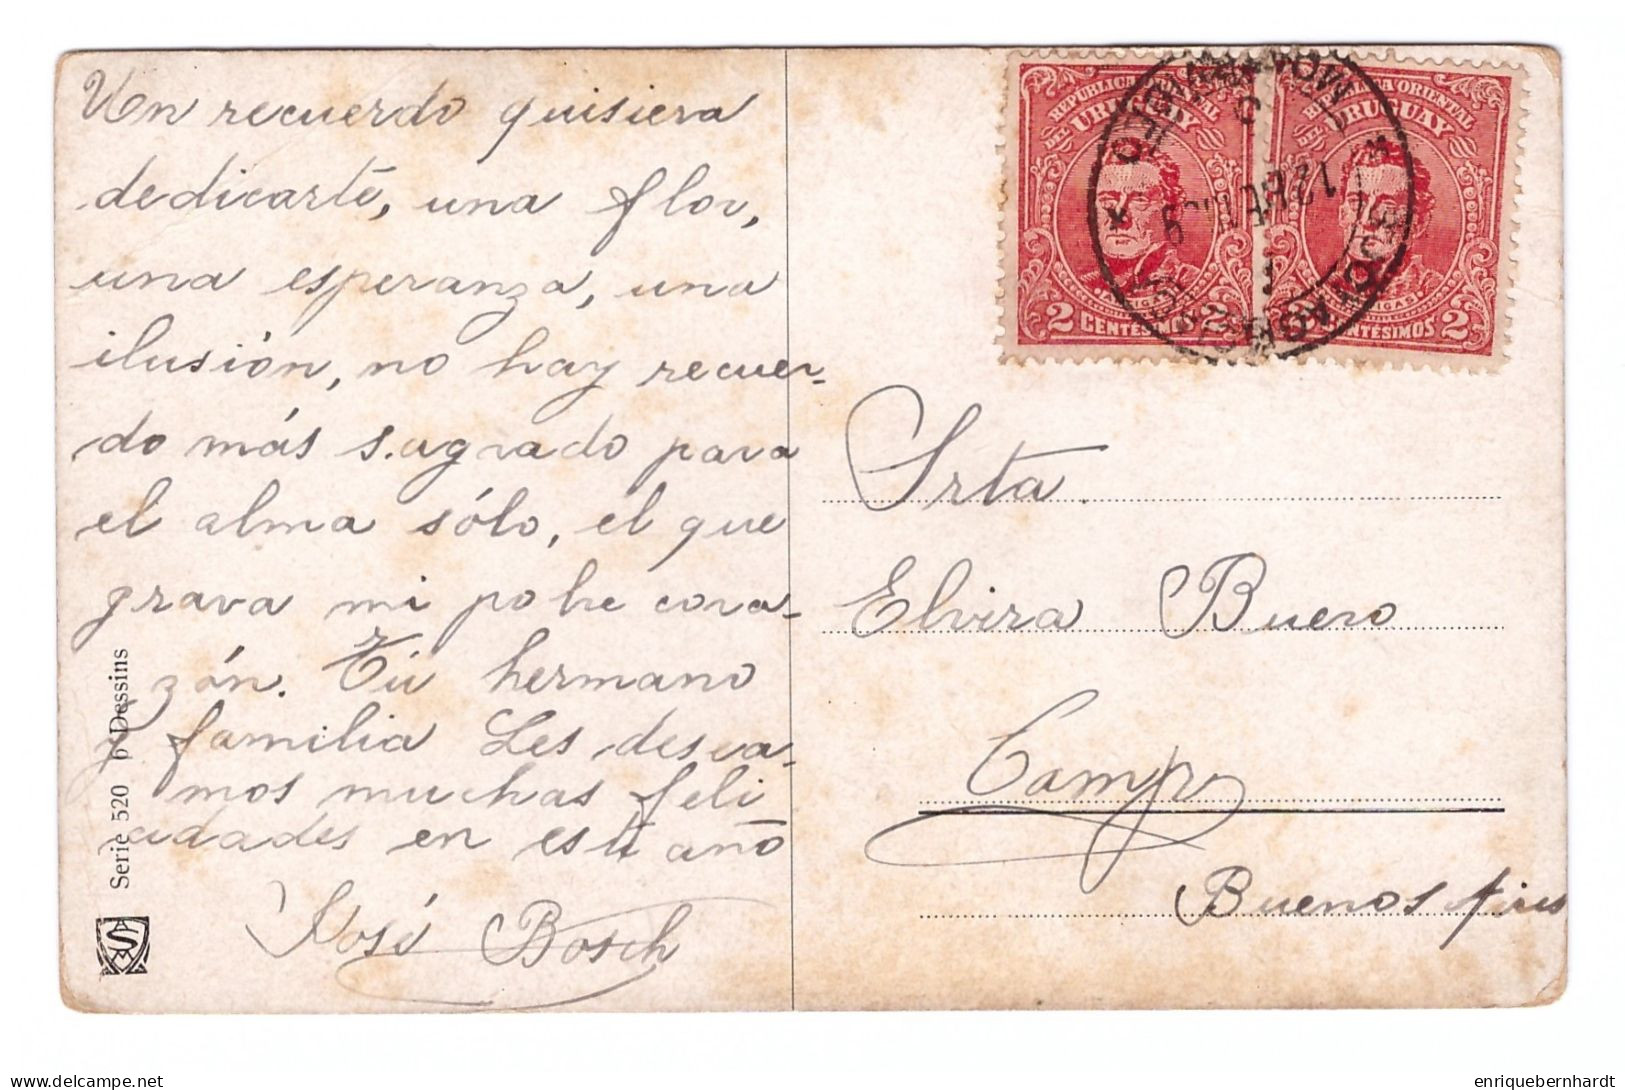 Un recuerdo quisiera
dedicarte, una flor,
una esperanza, una
ilusión, no hay recuer-
do más sagrado para
el alma sólo, el que
grava mi pobre cora-
zón. Tú hermano
y familia Les desea-
mos muchas feli
cidades en este año
José Bosch
Serie 520 6 Dessins
REPUBLICA ORIENTAL
DEL URUGUAY
ARTIGAS
2 CENTÉSIMOS 2
REPUBLICA ORIENTAL
DEL URUGUAY
ARTIGAS
CENTÉSIMOS 2
MONTEVIDEO
Srta.
Elvira Buero
Campo
Buenos Aires
enriquebernhardt